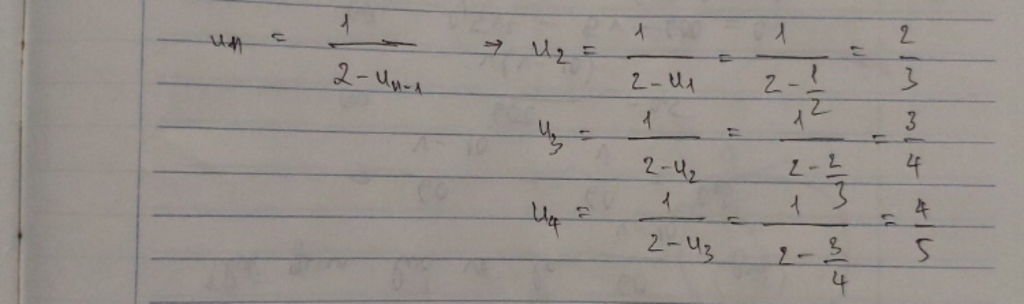 uₙ = 1/(2 - uₙ₋₁) → u₂ = 1/(2 - u₁) = 1/(2 - 1/2) = 2/3
u₃ = 1/(2 - u₂) = 1/(2 - 2/3) = 3/4
u₄ = 1/(2 - u₃) = 1/(2 - 3/4) = 4/5